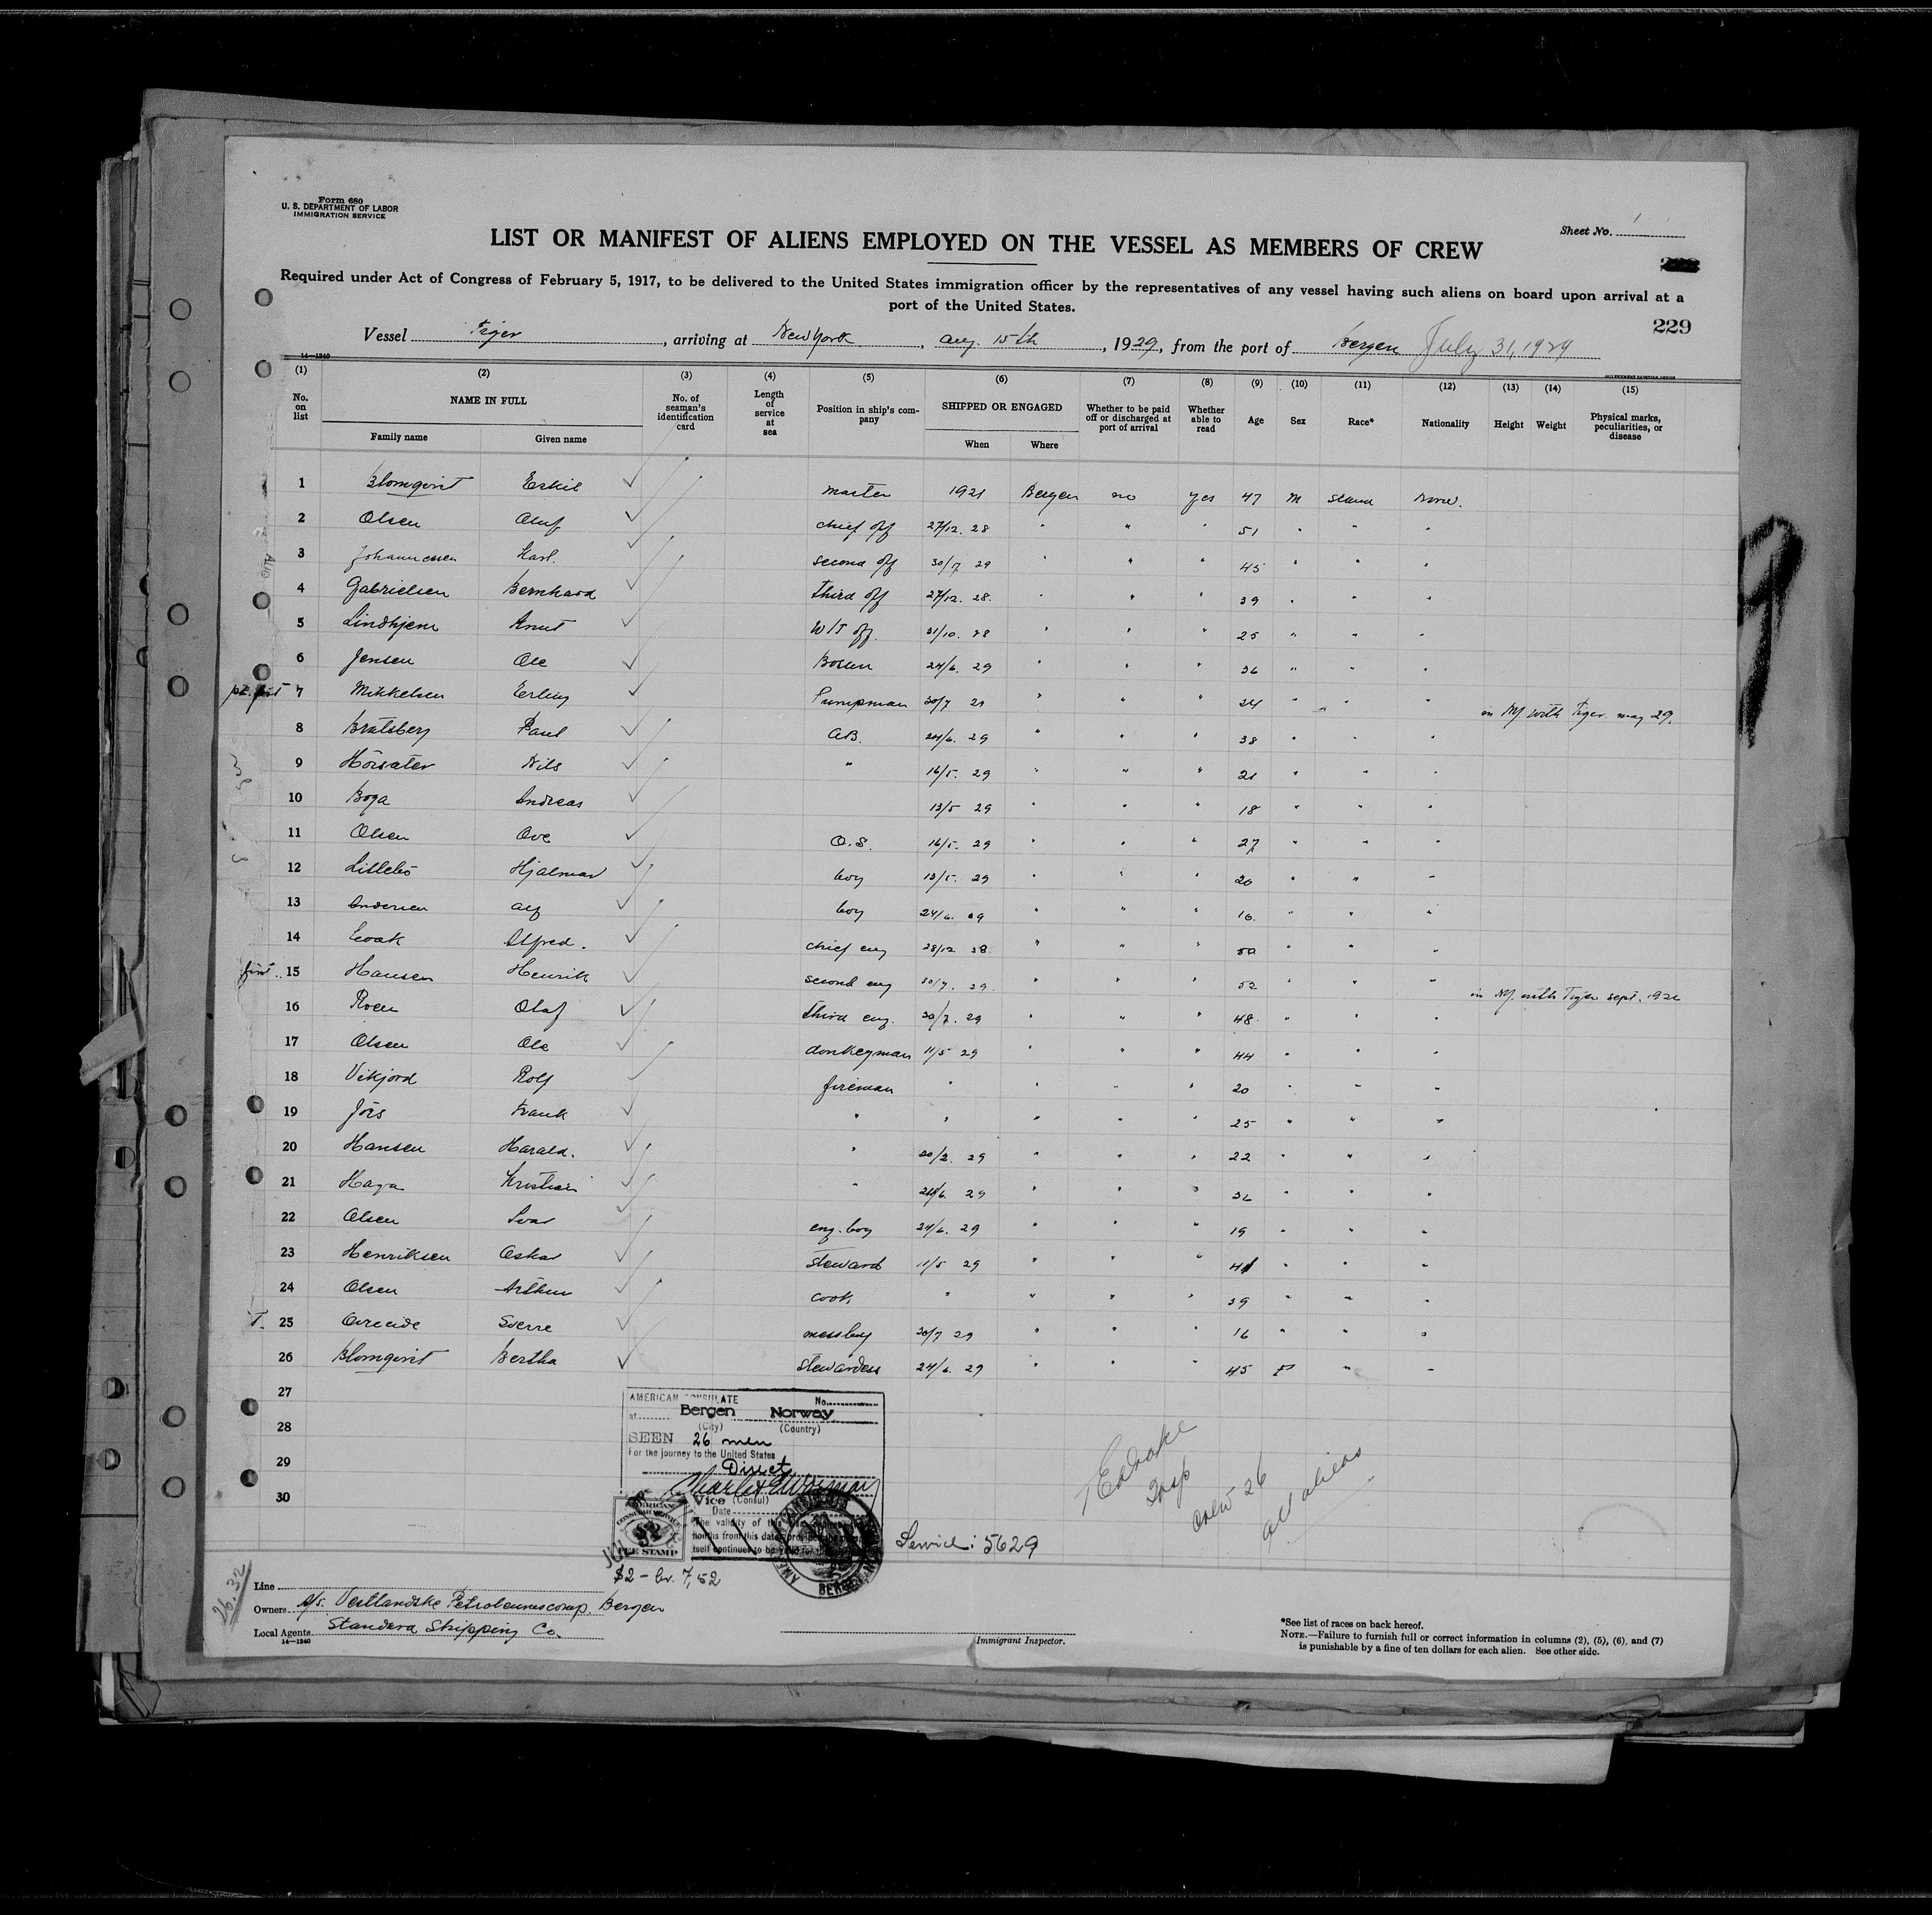 Form 680
U. S. DEPARTMENT OF LABOR
IMMIGRATION SERVICE
Sheet No. 1
LIST OR MANIFEST OF ALIENS EMPLOYED ON THE VESSEL AS MEMBERS OF CREW
Required under Act of Congress of February 5, 1917, to be delivered to the United States immigration officer by the representatives of any vessel having such aliens on board upon arrival at a
port of the United States.
229
Vessel Tiger, arriving at New York, Aug. 15th, 1929, from the port of Bergen July 31, 1929
14—1240
(1) (2) (3) (4) (5) (6) (7) (8) (9) (10) (11) (12) (13) (14) (15)
No. on list NAME IN FULL Family name Given name No. of seaman's identification card Length of service at sea Position in ship's company SHIPPED OR ENGAGED When Where Whether to be paid off or discharged at port of arrival Whether able to read Age Sex Race* Nationality Height Weight Physical marks, peculiarities, or disease
1 Blomqvist Eskil master 1921 Bergen no yes 47 M Scand Norw.
2 Olsen Oluf chief off 27/12. 28 " " " 51 " " "
3 Johannessen Karl. second off 30/7 29 " " " 45 " " "
4 Gabrielsen Bernhard third off 27/12. 28. " " " 39 " " "
5 Lindhjem Knut W/T off. 31/10. 28 " " " 25 " " "
6 Jensen Ole Bosun 24/6. 29 " " " 36 " " "
7 Mikkelsen Erling Pumpman 30/7 29 " " " 34 " " " in NY with Tiger may 29.
8 Bratsberg Paul AB. 24/6. 29 " " " 38 " " "
9 Nils " 16/5. 29 " " " 21 " " "
10 Boga Andreas 13/5 29 " " " 18 " " "
11 Olsen Ove O.S. 16/5. 29 " " " 27 " " "
12 Lillebö Hjalmar boy 13/5. 29 " " " 20 " " "
13 Andersen Alf boy 24/6. 29 " " " 16. " " "
14 Alfred. chief eng 28/12 28 " " " 50 " " "
15 Hansen Henrik second eng 30/7. 29. " " " 52 " " " in NY. with Tiger sept. 192
16 Roen Olaf third eng. 30/7. 29 " " " 48 " " "
17 Olsen Ole donkeyman 11/5 29 " " " 44 " " "
18 Vikjord Rolf fireman " " " " 20 " " "
19 Jörs Frank " " " " " 25 " " "
20 Hansen Harald. " 20/2. 29 " " " 22 " " "
21 Haga Kristian " 24/6. 29 " " " 36 " " "
22 Olsen Ivar eng. boy 24/6. 29 " " " 19 " " "
23 Henriksen Oskar steward 11/5 29 " " " 41 " " "
24 Olsen Arthur cook " " " " 39 " " "
T. 25 Sverre messboy 30/7 29 " " " 16 " " "
26 Blomqvist Bertha stewardess 24/6. 29 " " " 45 F " "
27
28
29
30
AMERICAN CONSULATE No.
at Bergen Norway
(City) (Country)
SEEN 26 men
For the journey to the United States
Direct
Vice (Consul)
Date
$2 – kr. 7,52
Service: 5629
Insp
crew 26
all aliens
26.32
Line
Owners A/S. Vestlandske Petroleumscomp. Bergen
Local Agents Standard Shipping Co.
14—1240
Immigrant Inspector.
*See list of races on back hereof.
NOTE.—Failure to furnish full or correct information in columns (2), (5), (6), and (7)
is punishable by a fine of ten dollars for each alien. See other side.